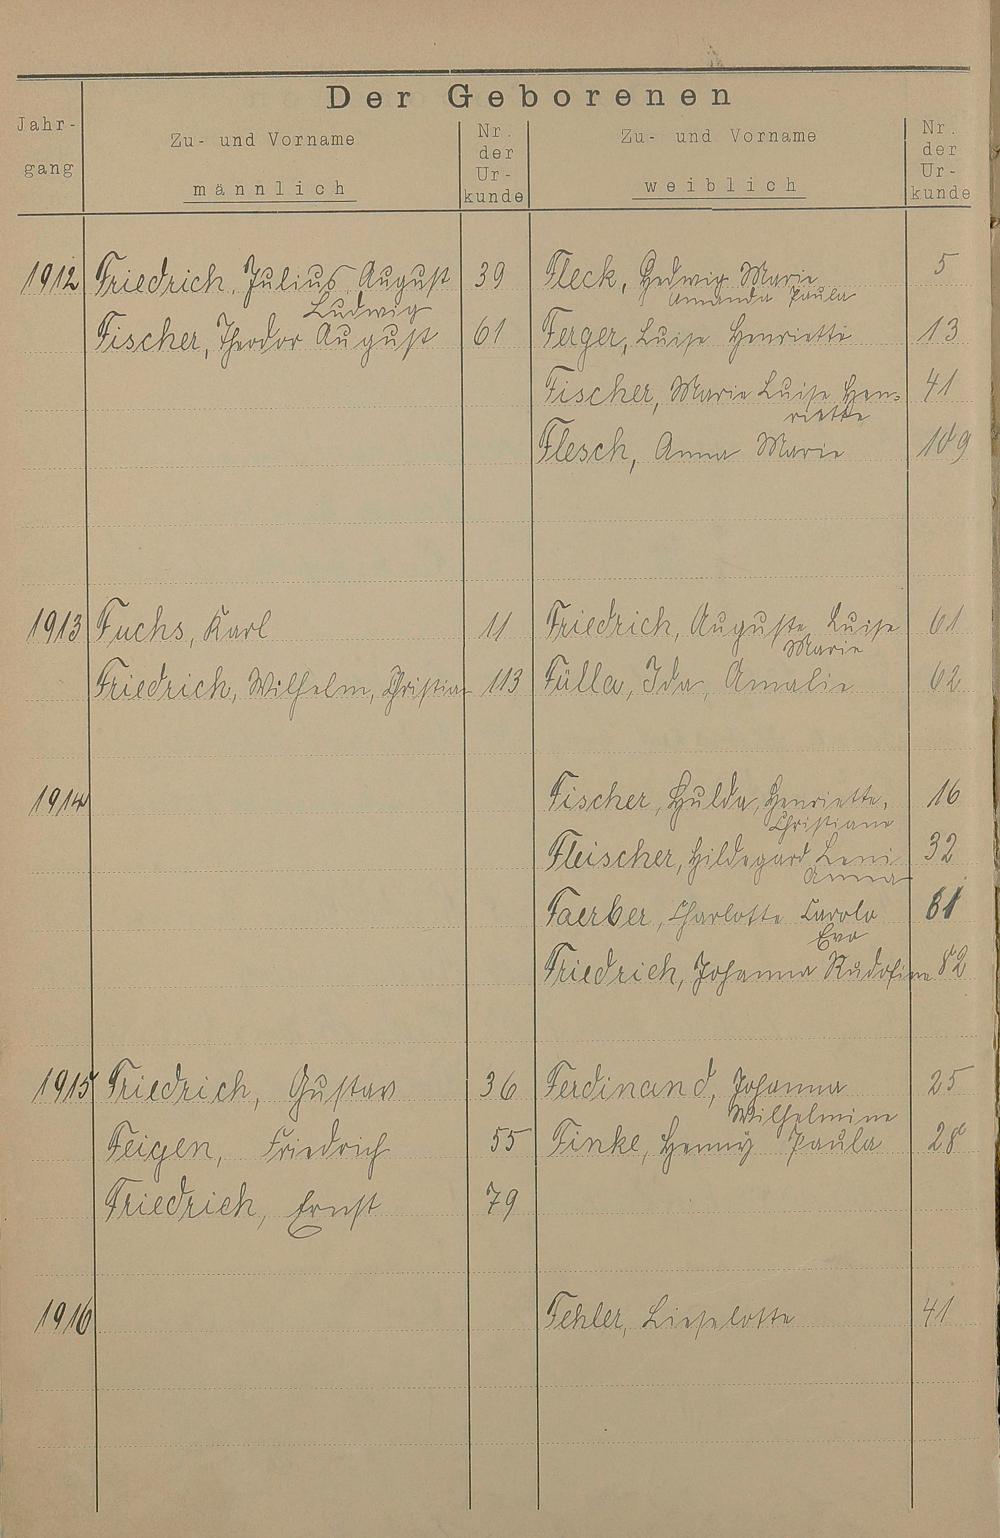 Der Geborenen
Jahr-
gang
Zu- und Vorname
männlich
Nr.
der
Ur-
kunde
Zu- und Vorname
weiblich
Nr.
der
Ur-
kunde
1912 Friedrich, Julius August 39 Fleck, Hedwig Marie 5
Ludwig Amanda Paula
Fischer, Theodor August 61 Ferger, Luise Henriette 13
Fischer, Marie Luise Hen- 41
riette
Flesch, Anna Marie 109
1913 Fuchs, Karl 11 Friedrich, Auguste Luise 61
Marie
Friedrich, Wilhelm, Christian 113 Fülla, Ida, Amalie 62
1914 Fischer, Hulda, Henriette, 16
Christiane
Fleischer, Hildegard Leni 32
Anna
Faerber, Charlotte Carola 81
Eva
Friedrich, Johanna Rudofine 82
1915 Friedrich, Gustav 36 Ferdinand, Johanna 25
Wilhelmine
Feigen, Friedrich 55 Finke, Henny Paula 28
Friedrich, Ernst 79
1916 Fehler, Lieselotte 41